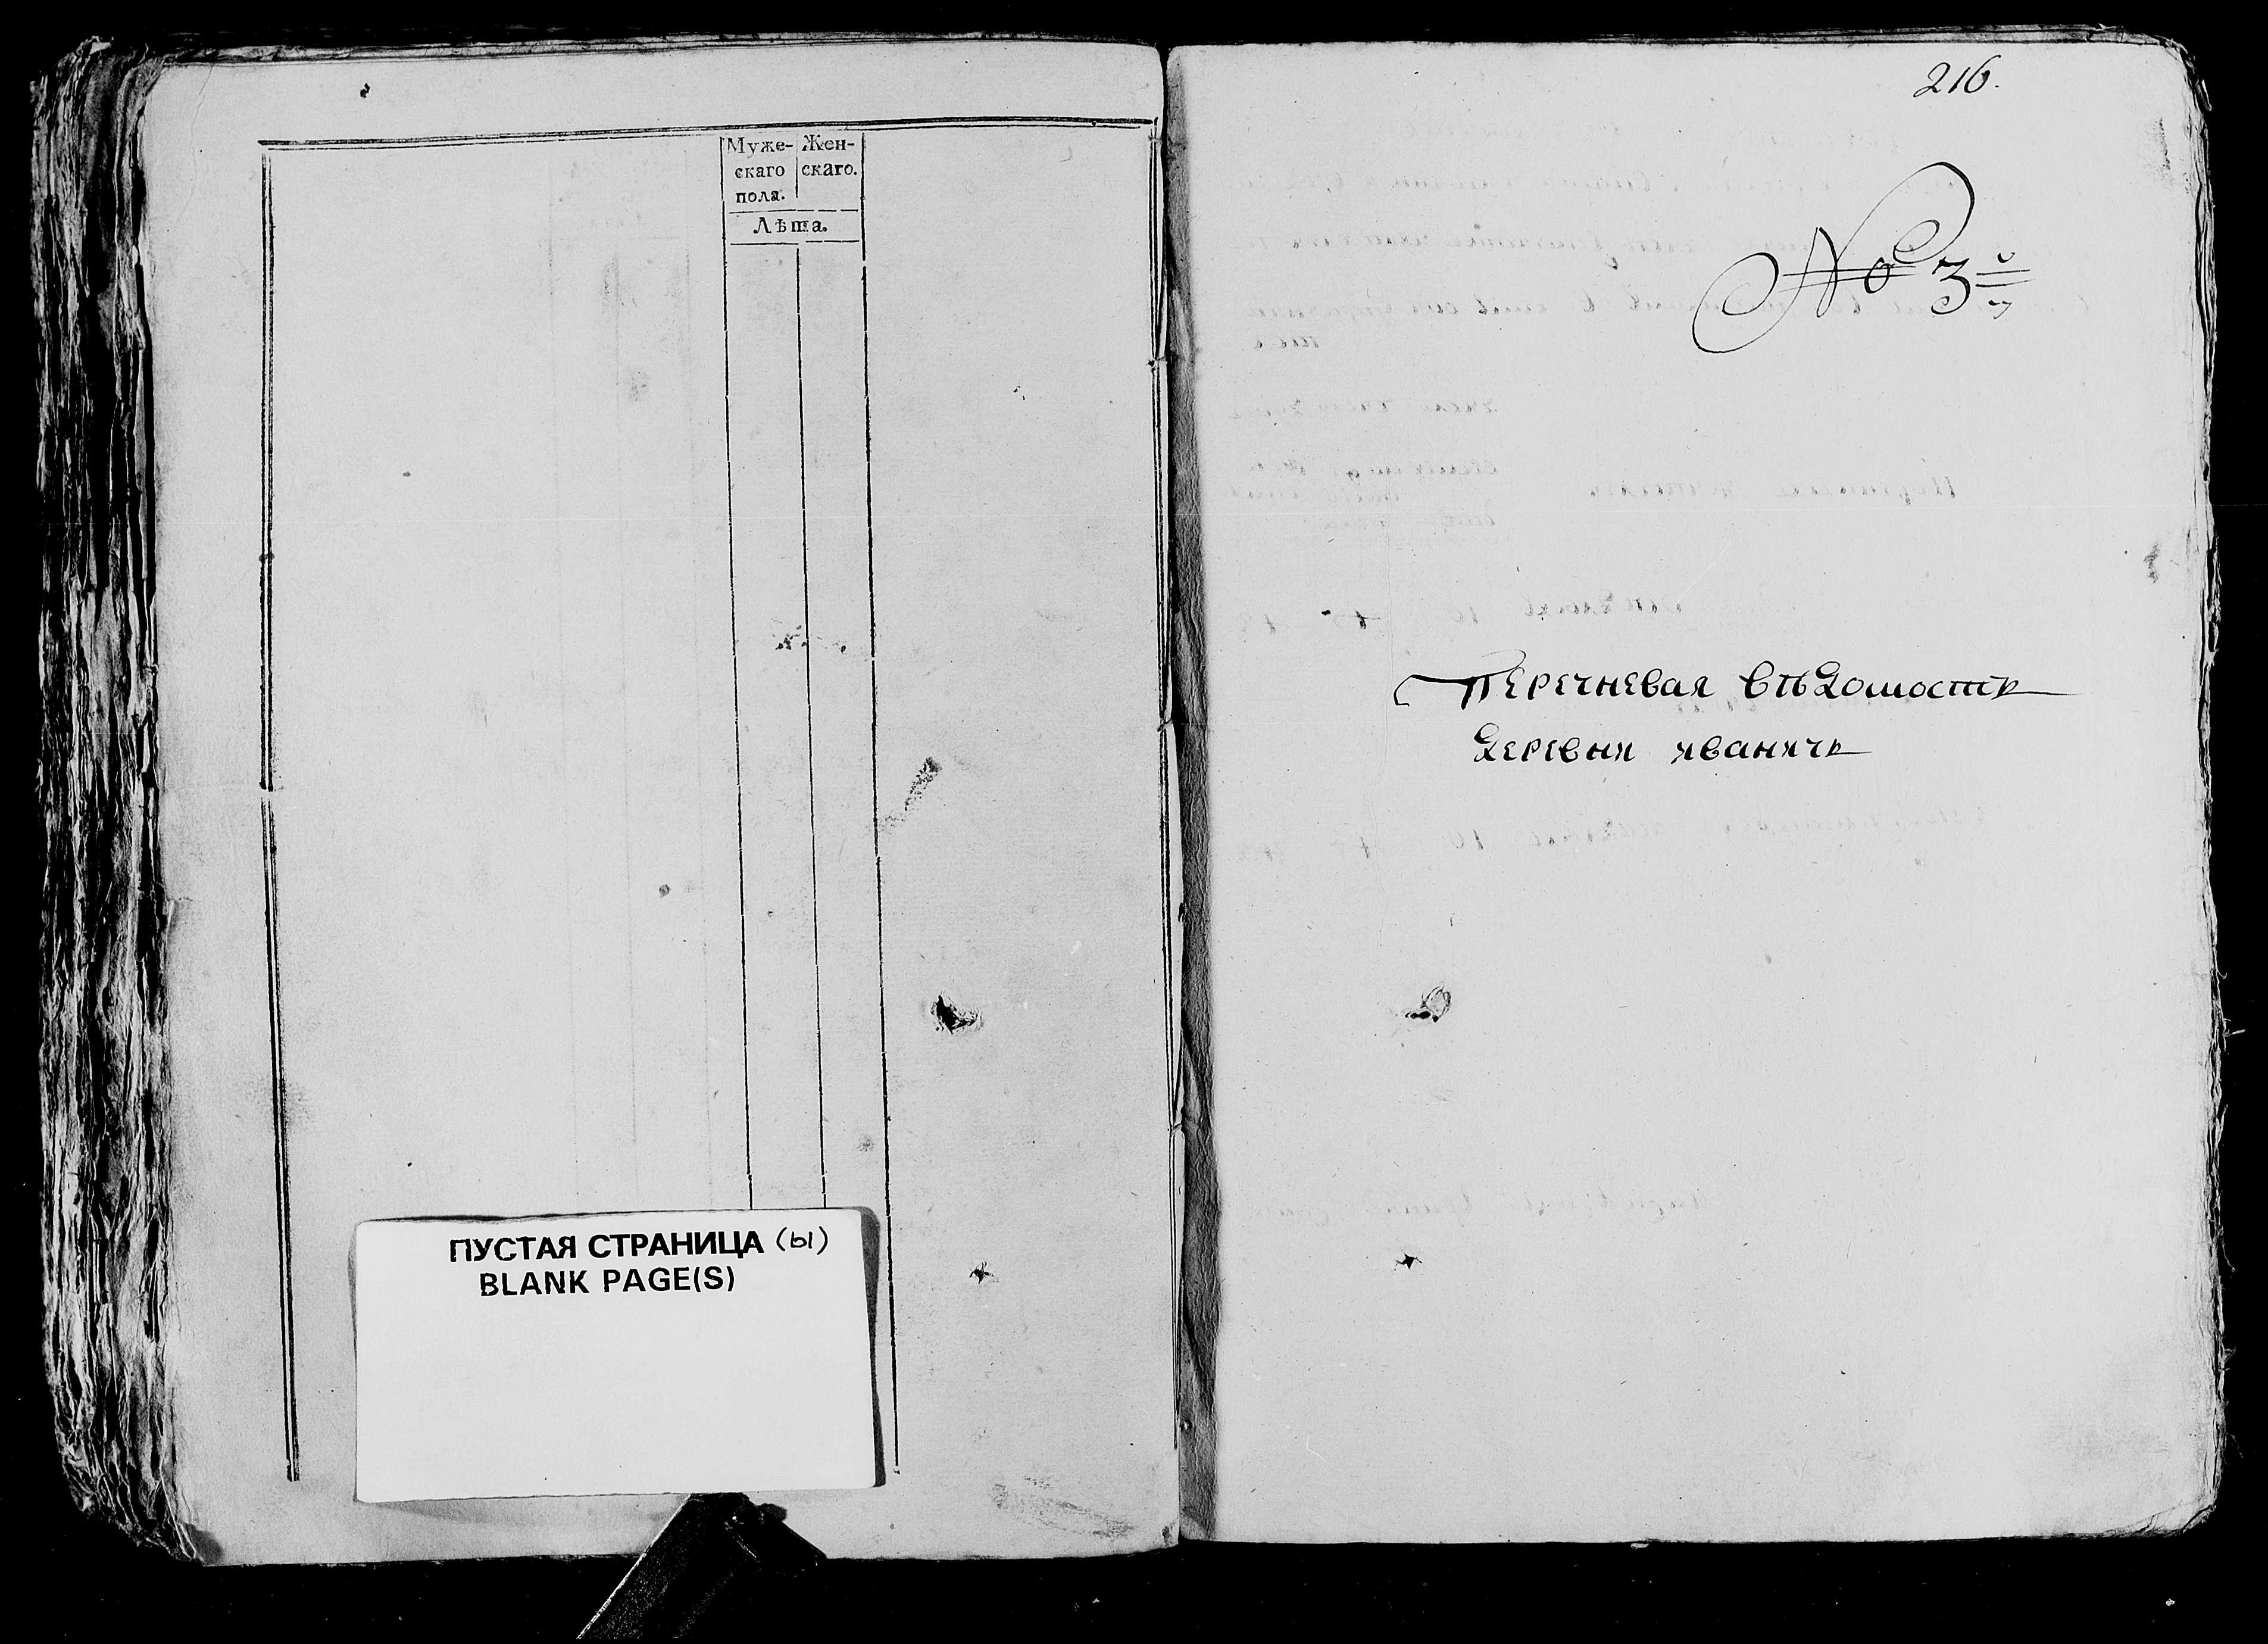 Муже-
скаго
пола.
Жен-
скаго.
Лѣта.
ПУСТАЯ СТРАНИЦА (ы)
BLANK PAGE(S)
216.
№ 3й
Перечневая вѣдомость
деревни иваничь